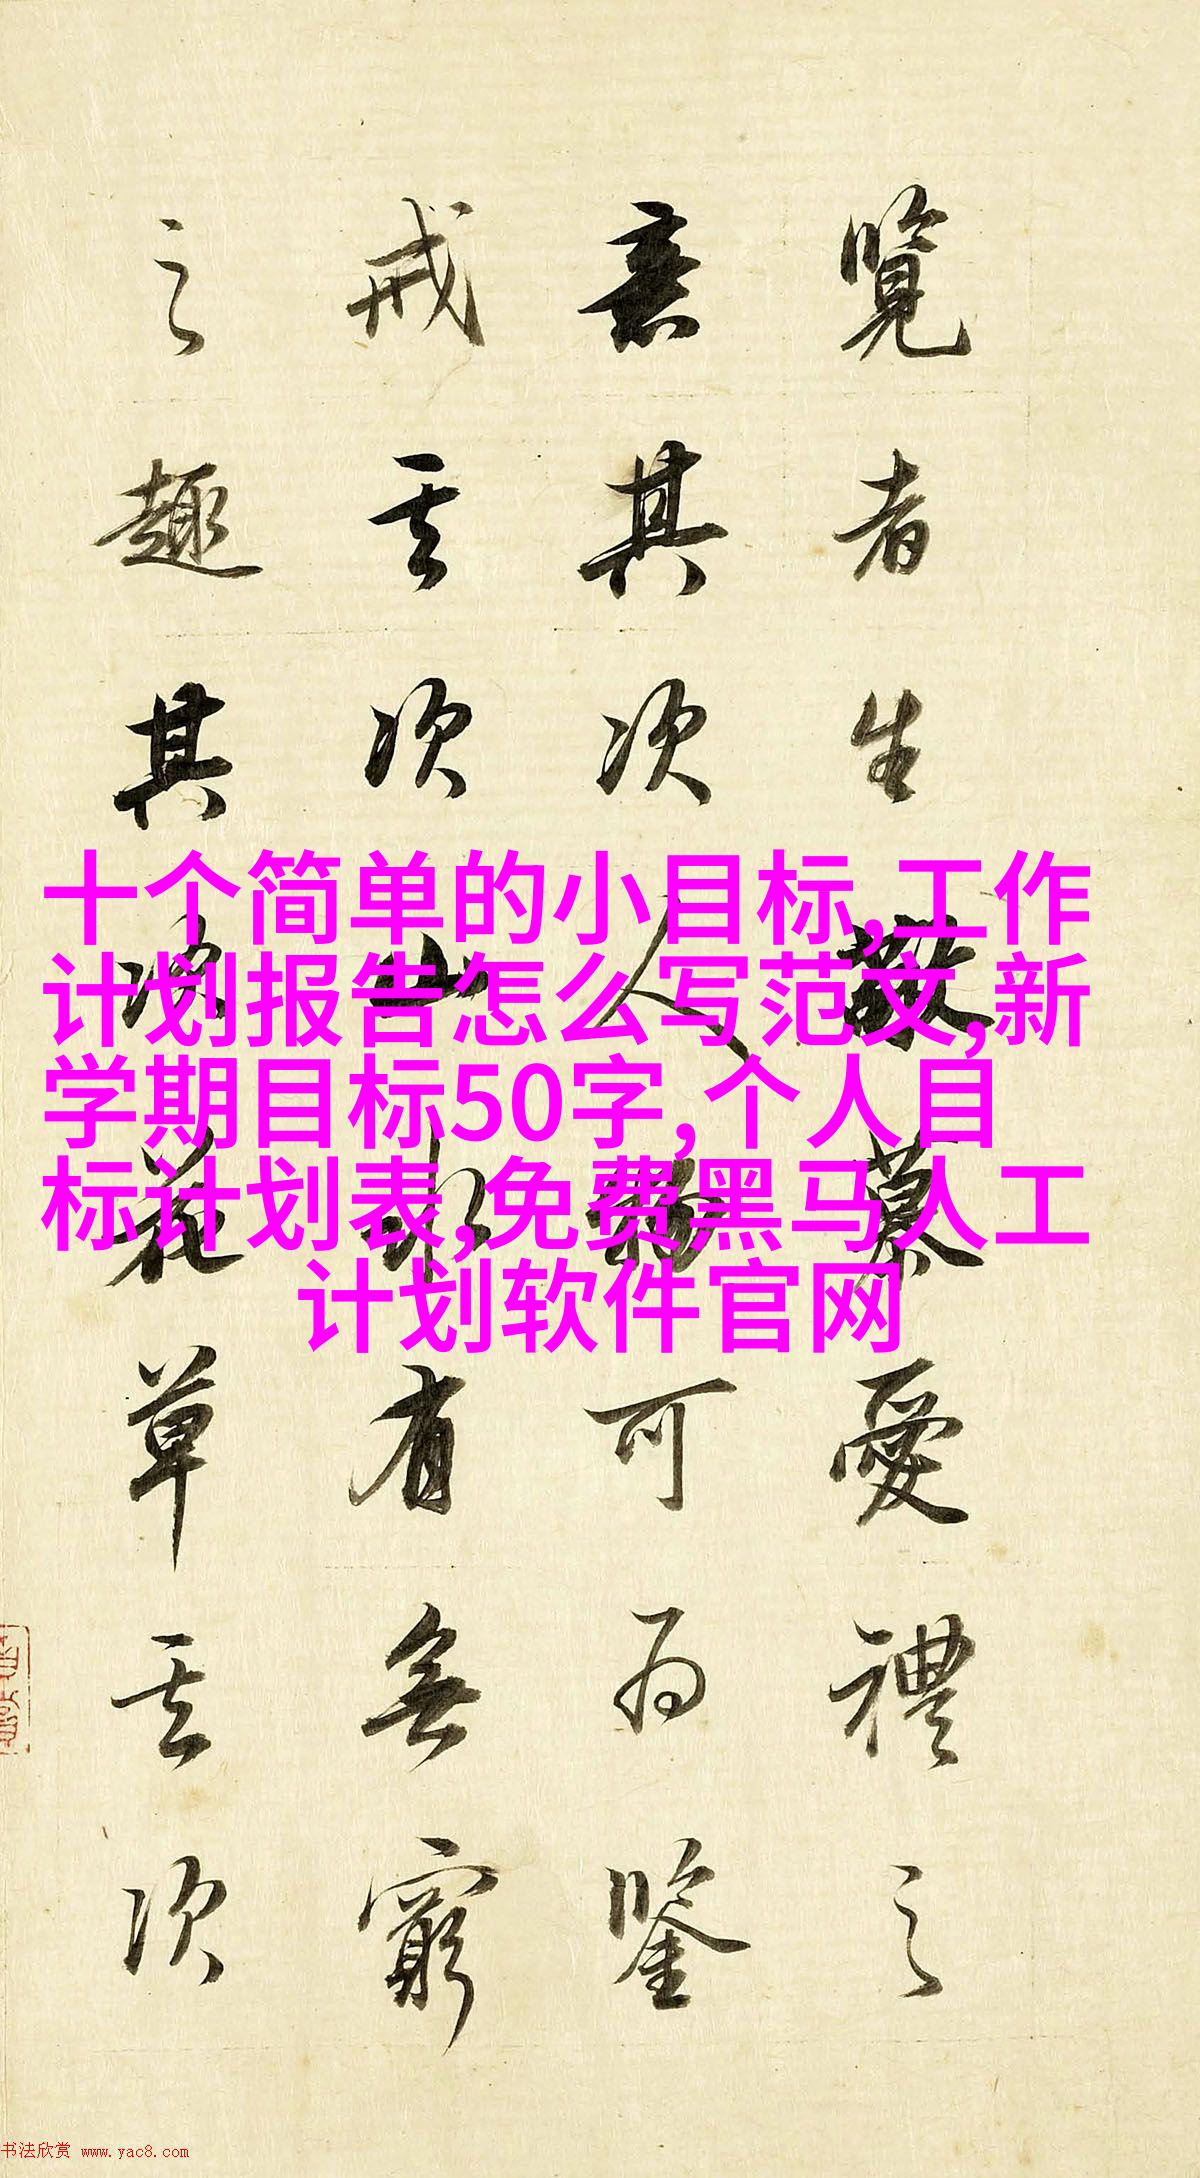 覽者生敬慕愛禮之
意其次人物可為鑒
戒其次山水有無窮
之趣其次花草其次
十个简单的小目标,工作
计划报告怎么写范文,新
学期目标50字,个人目
标计划表,免费黑马人工
计划软件官网
书法欣赏 www.yac8.com